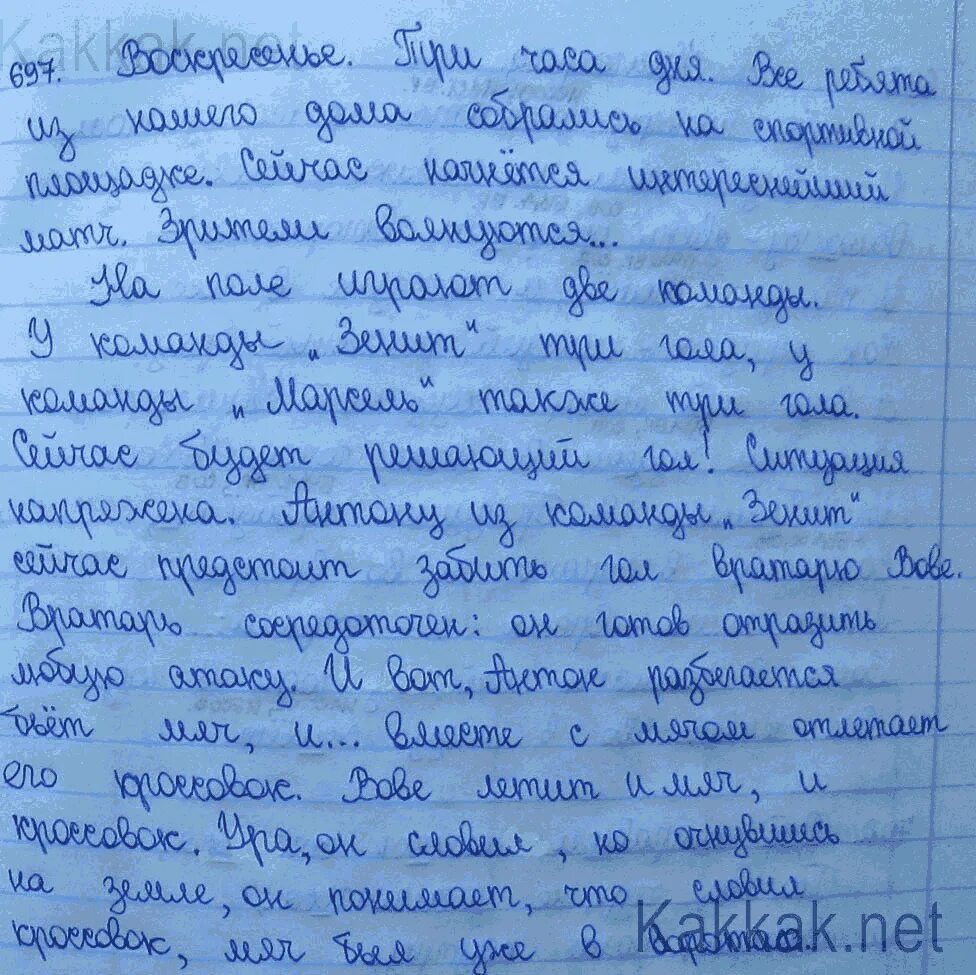 Kakkak.net
697. Воскресенье. Три часа дня. Все ребята
из нашего дома собрались на спортивной
площадке. Сейчас начнётся интереснейший
матч. Зрители волнуются...
На поле играют две команды.
У команды „Зенит" три гола, у
команды „Марсель" также три гола.
Сейчас будет решающий гол! Ситуация
напряжена. Антону из команды „Зенит"
сейчас предстоит забить гол вратарю Вове.
Вратарь сосредоточен: он готов отразить
любую атаку. И вот, Антон разбегается
бьёт мяч, и... вместе с мячом отлетает
его кроссовок. Вове летит и мяч, и
кроссовок. Ура, он словил, но очнувшись
на земле, он понимает, что словил
кроссовок, мяч был уже в воротах.
Kakkak.net